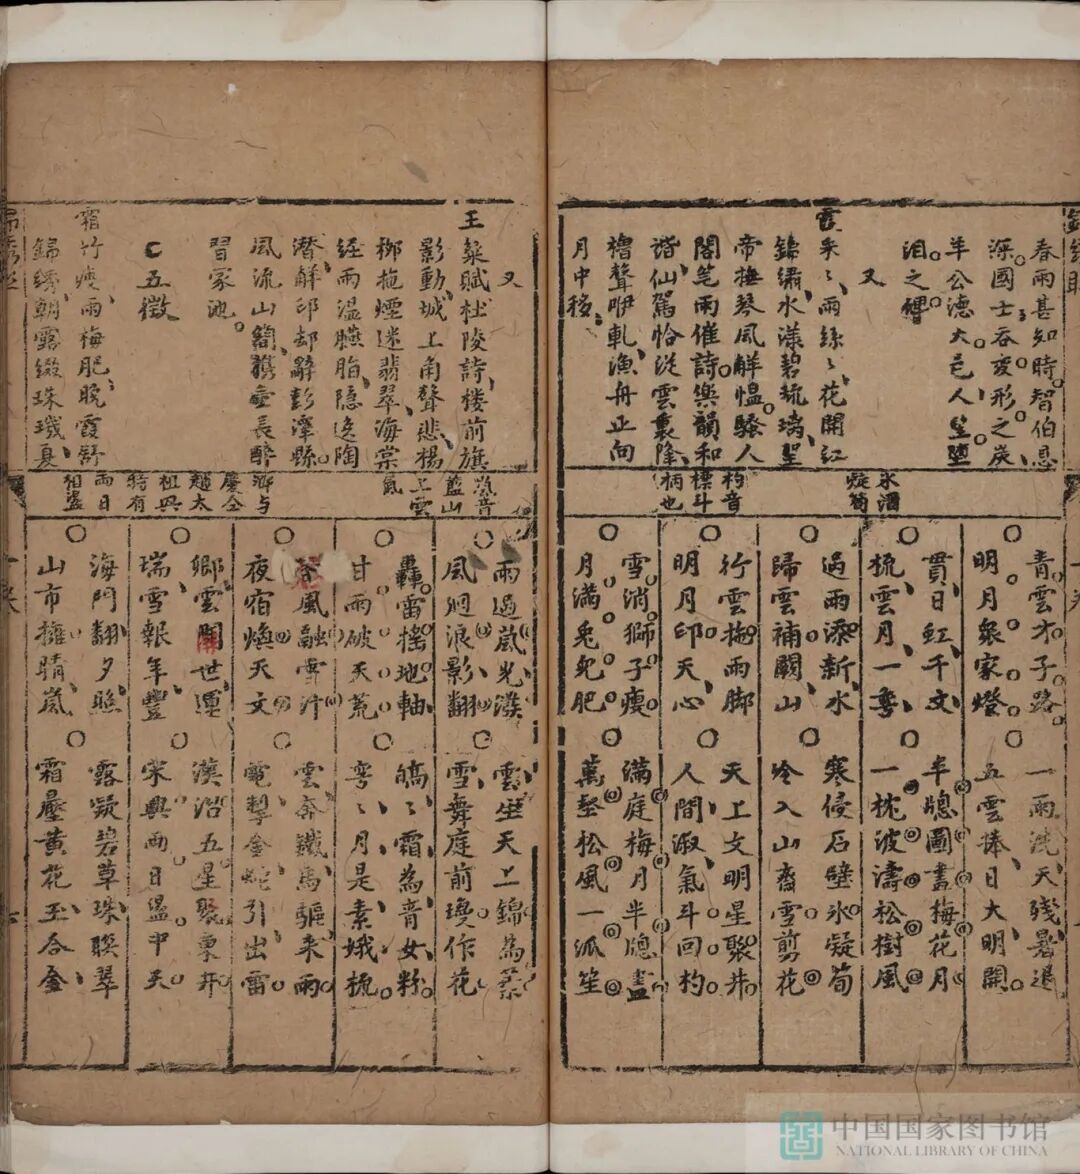 春雨甚知時智伯恩
深國士吞变形之炭
羊公德大邑人坠墮
泪之碑
又
雲朵〻雨絲〻花開江
錦繡水漾碧琉璃聖
帝撫琴風觧愠騷人
閣笔雨催詩樂韻和
谐仙驾恰従雲裏降
橹聲咿軋渔舟正向
月中移
凝筍
杓音
標斗
柄也
青雲才子路
明月衆家燈
貫日虹千丈
梳雲月一弯
过雨添新水
歸雲補闕山
行雲拖雨脚
明月印天心
雪消獅子瘦
月满兎兒肥
一雨洗天殘暑退
五雲捧日大明開
半牕圖畫梅花月
一枕波濤松樹風
寒侵石壁氷凝筍
冷入山齋雪剪花
天上文明星聚井
人間淑氣斗回杓
滿庭梅月半牕畫
萬壑松風一派笙
又
王粲賦杜陵詩楼前旗
影動城上角聲悲楊
柳拖煙迷翡翠海棠
经雨温臙脂隐逸陶
潜觧印却辭彭澤縣
風流山簡携壷長醉
習家池
五微
霜竹瘦雨梅肥晚霞舒
錦綉朝露缀珠璣夏
嵐音
藍山
上雲
氣
鄉与
慶仝
趙太
祖興
時有
兩日
相盪
雨過嵐光濮
風廻浪影翻
轟雷摇地軸
甘雨破天荒
春風融雪汁
夜宿煥天文
鄉雲開世運
瑞雪報年豐
海門翻夕照
山市擁晴嵐
雲坐天上錦為葉
雪舞庭前瓊作花
皜〻霜為青女粉
弯〻月是素娥梳
雲奔鐵馬驱来雨
電掣金蛇引出雷
漢治五星聚東井
宋興兩日盪中天
露凝碧草珠聯翠
霜壓黄花玉合金
中国国家图书馆
NATIONAL LIBRARY OF CHINA